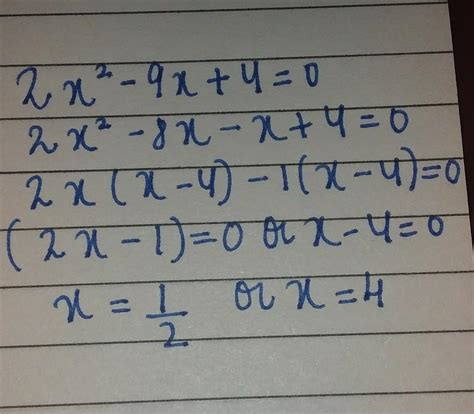 2x² - 9x + 4 = 0
2x² - 8x - x + 4 = 0
2x(x - 4) - 1(x - 4) = 0
(2x - 1) = 0 or x - 4 = 0
x = 1/2 or x = 4